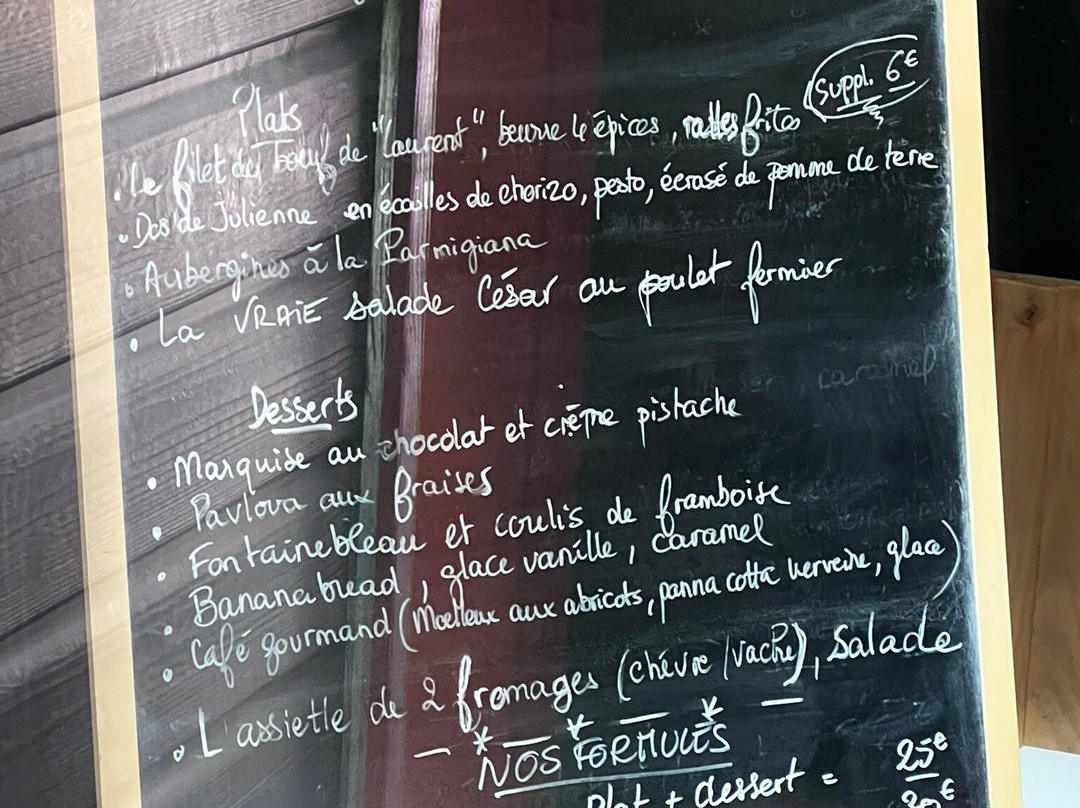 Plats
Suppl. 6€
• Le filet de boeuf de "Laurent", beurre 4 épices, rattes frites
• Dos de Julienne en écailles de chorizo, pesto, écrasé de pomme de terre
• Aubergines à la Parmigiana
• La VRAIE salade César au poulet fermier
caramel
Desserts
• Marquise au chocolat et crème pistache
• Pavlova aux fraises
• Fontainebleau et coulis de framboise
• Bananabread, glace vanille, caramel
• Café gourmand (Moelleux aux abricots, panna cotta verveine, glace)
• L'assiette de 2 fromages (chèvre/vache), salade
NOS FORMULES
Plat + dessert = 25€